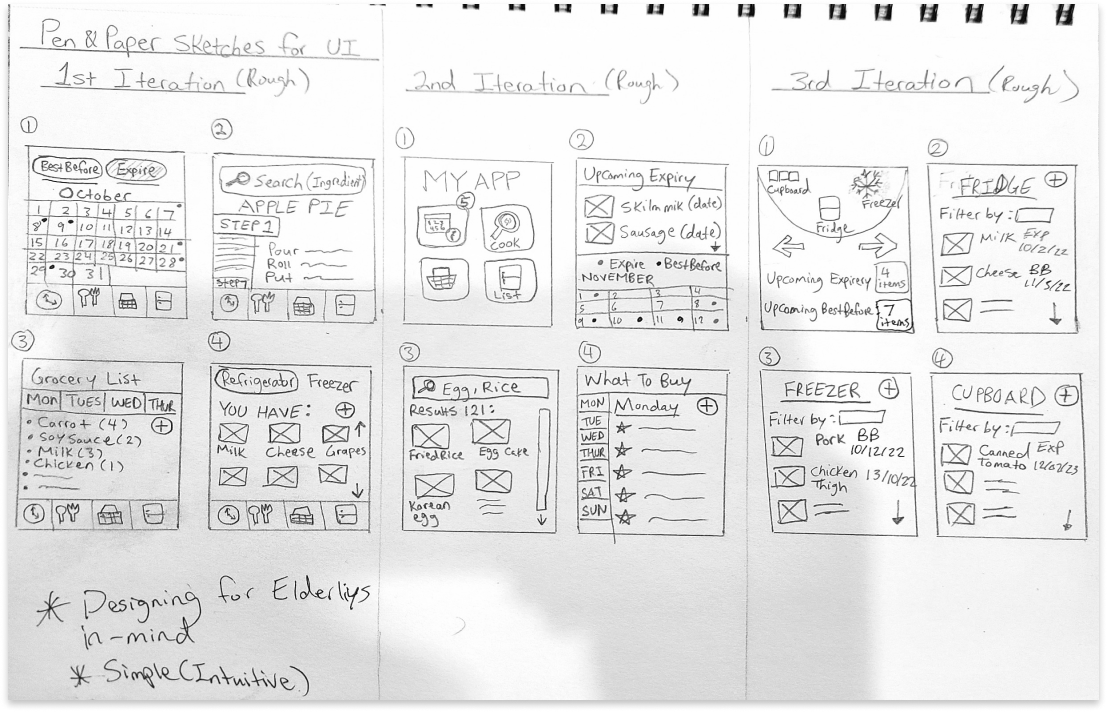 Pen & Paper Sketches for UI
1st Iteration (Rough)
1
BestBefore Expire
October
1 2 3 4 5 6 7
8 9 10 11 12 13 14
15 16 17 18 19 20 21
22 23 24 25 26 27 28
29 30 31
2
Search (Ingredient)
APPLE PIE
STEP 1
Pour
Roll
Put
3
Grocery List
Mon TUES WED THUR
Carrot (4)
Soy Sauce (2)
Milk (3)
Chicken (1)
4
Refrigerator Freezer
YOU HAVE:
Milk Cheese Grapes
* Designing for Elderliys
in-mind
* Simple (Intuitive)
2nd Iteration (Rough)
1
MY APP
5
Cook
List
2
Upcoming Expiry
Skilmmik (date)
Sausage (date)
Expire BestBefore
NOVEMBER
1 2 3 4
5 6 7 8
9 10 11 12
3
Egg, Rice
Results 121:
Fried Rice Egg Cake
Korean
egg
4
What To Buy
MON
TUE
WED
THUR
FRI
SAT
SUN
Monday
3rd Iteration (Rough)
1
Cupboard
Freezer
Fridge
Upcoming Expirery 4 items
Upcoming BestBefore: 7 items
2
FRIDGE
Filter by:
Milk EXP
10/2/22
Cheese BB
3
FREEZER
Filter by:
Pork BB
10/12/22
Chicken 13/10/22
Thigh
4
CUPBOARD
Filter by:
Canned EXP
Tomato